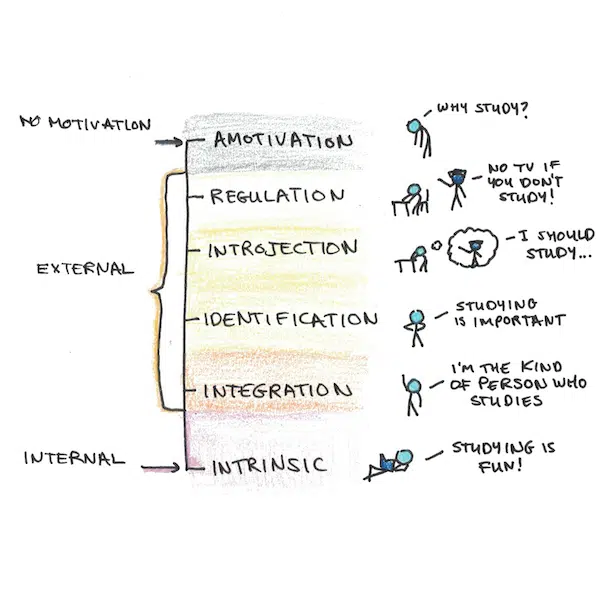 NO MOTIVATION
AMOTIVATION
WHY STUDY?
REGULATION
NO TV IF
YOU DON'T
STUDY!
EXTERNAL
INTROJECTION
I SHOULD
STUDY...
IDENTIFICATION
STUDYING
IS IMPORTANT
INTEGRATION
I'M THE KIND
OF PERSON WHO
STUDIES
INTERNAL
INTRINSIC
STUDYING IS
FUN!